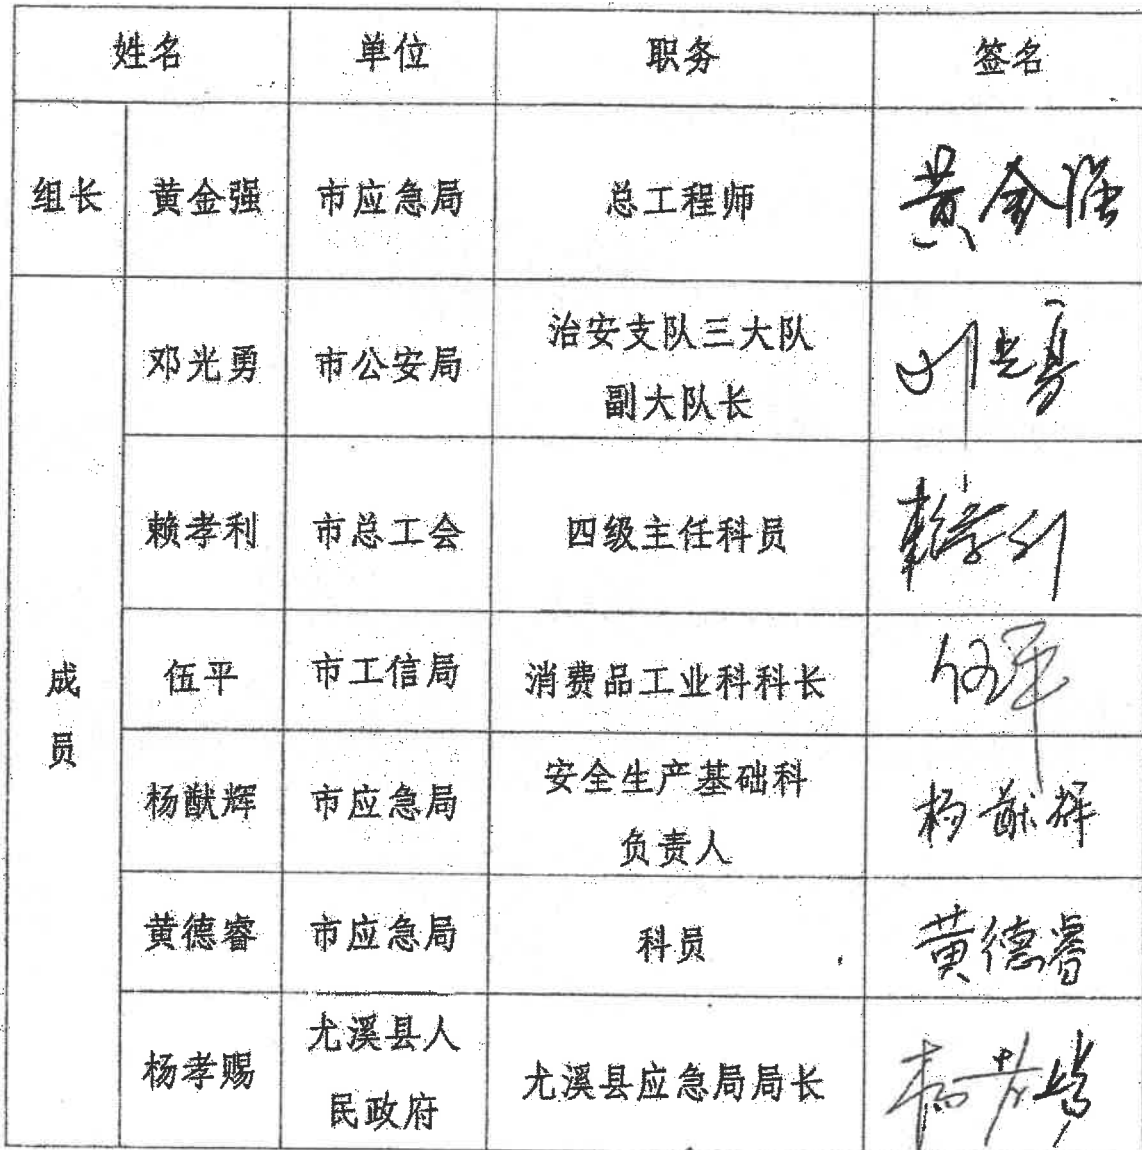 姓名 单位 职务 签名
组长 黄金强 市应急局 总工程师 黄金强
成员
邓光勇 市公安局 治安支队三大队
副大队长 邓光勇
赖孝利 市总工会 四级主任科员 赖孝利
伍平 市工信局 消费品工业科科长 伍平
杨猷辉 市应急局 安全生产基础科
负责人 杨猷辉
黄德睿 市应急局 科员 黄德睿
杨孝赐 尤溪县人
民政府 尤溪县应急局局长 杨孝赐